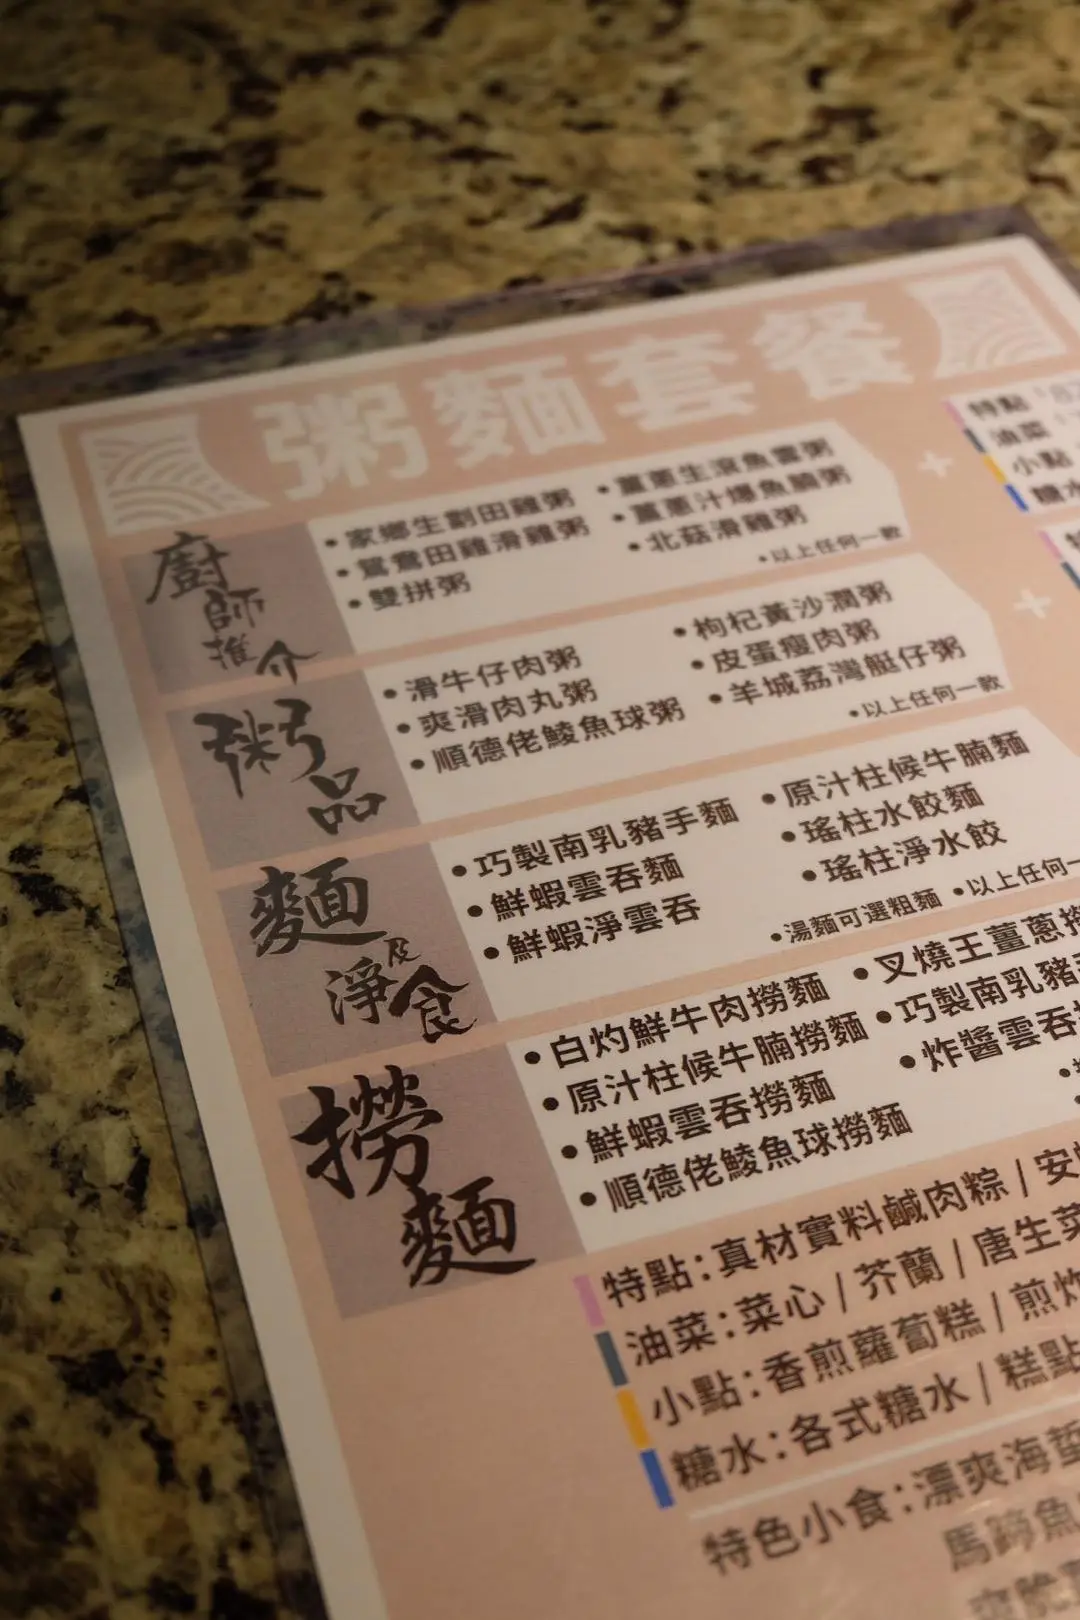 粥麵套餐
廚師推介
• 家鄉生劏田雞粥
• 鴛鴦田雞滑雞粥
• 雙拼粥
• 薑蔥生滾魚雲粥
• 薑蔥汁爆魚腩粥
• 北菇滑雞粥
• 以上任何一款
+
特點
油菜
小點
糖水
粥品
• 滑牛仔肉粥
• 爽滑肉丸粥
• 順德佬鯪魚球粥
• 枸杞黃沙潤粥
• 皮蛋瘦肉粥
• 羊城荔灣艇仔粥
• 以上任何一款
+
麵及淨食
• 巧製南乳豬手麵
• 鮮蝦雲吞麵
• 鮮蝦淨雲吞
• 原汁柱候牛腩麵
• 瑤柱水餃麵
• 瑤柱淨水餃
• 湯麵可選粗麵 • 以上任何一
撈麵
• 白灼鮮牛肉撈麵
• 原汁柱候牛腩撈麵
• 鮮蝦雲吞撈麵
• 順德佬鯪魚球撈麵
• 叉燒王薑蔥撈
• 巧製南乳豬
• 炸醬雲吞
特點:真材實料鹹肉粽 / 安
油菜:菜心 / 芥蘭 / 唐生菜
小點:香煎蘿蔔糕 / 煎炸
糖水:各式糖水 / 糕點
特色小食:漂爽海蜇
馬蹄魚
爽脆